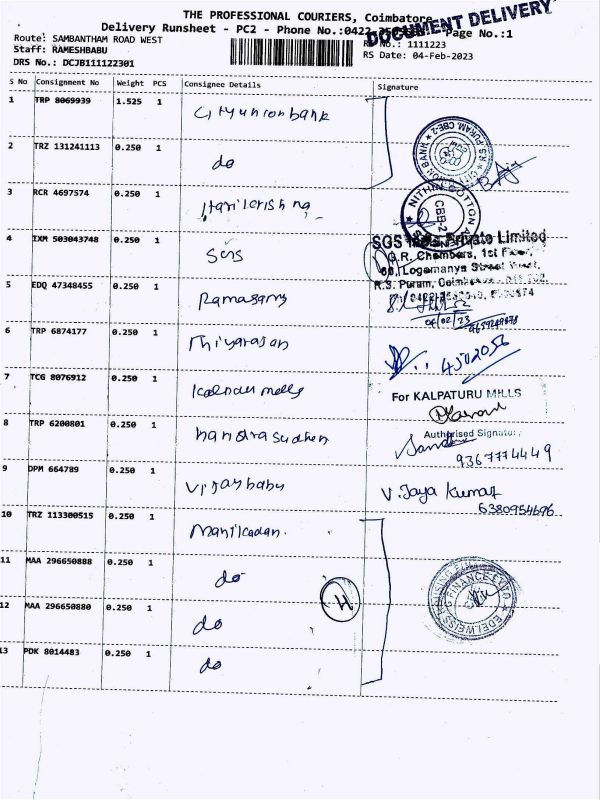 THE PROFESSIONAL COURIERS, Coimbatore
DOCUMENT DELIVERY
Delivery Runsheet - PC2 - Phone No.:0422 Page No.:1
Route: SAMBANTHAM ROAD WEST
Staff: RAMESHBABU
DRS No.: DCJB111122301
No.: 1111223
RS Date: 04-Feb-2023
S No Consignment No Weight PCS Consignee Details Signature
1 TRP 8069939 1.525 1 Cityunionbank
2 TRZ 131241113 0.250 1 do
3 RCR 4697574 0.250 1 Harikrishna
NITHIN COTTON
CBE-2
4 IXM 503043748 0.250 1 SGS
SGS Private Limited
G.R. Chambers, 1st Floor,
Logamanya Street West,
R.S. Puram,
5 EDQ 47348455 0.250 1 Ramasamy
04/02/23
6 TRP 6874177 0.250 1 Thiyarasan
4502056
7 TCG 8076912 0.250 1
For KALPATURU MILLS
Authorised Signatory
8 TRP 6200801 0.250 1
9367774449
9 DPM 664789 0.250 1 Vijaybabu
V. Jaya Kumar
6380954696
10 TRZ 113300515 0.250 1 Manikadan.
11 MAA 296650888 0.250 1 do
12 MAA 296650880 0.250 1 do
EDELWEISS HOUSING FINANCE LTD
13 PDK 8014483 0.250 1 do